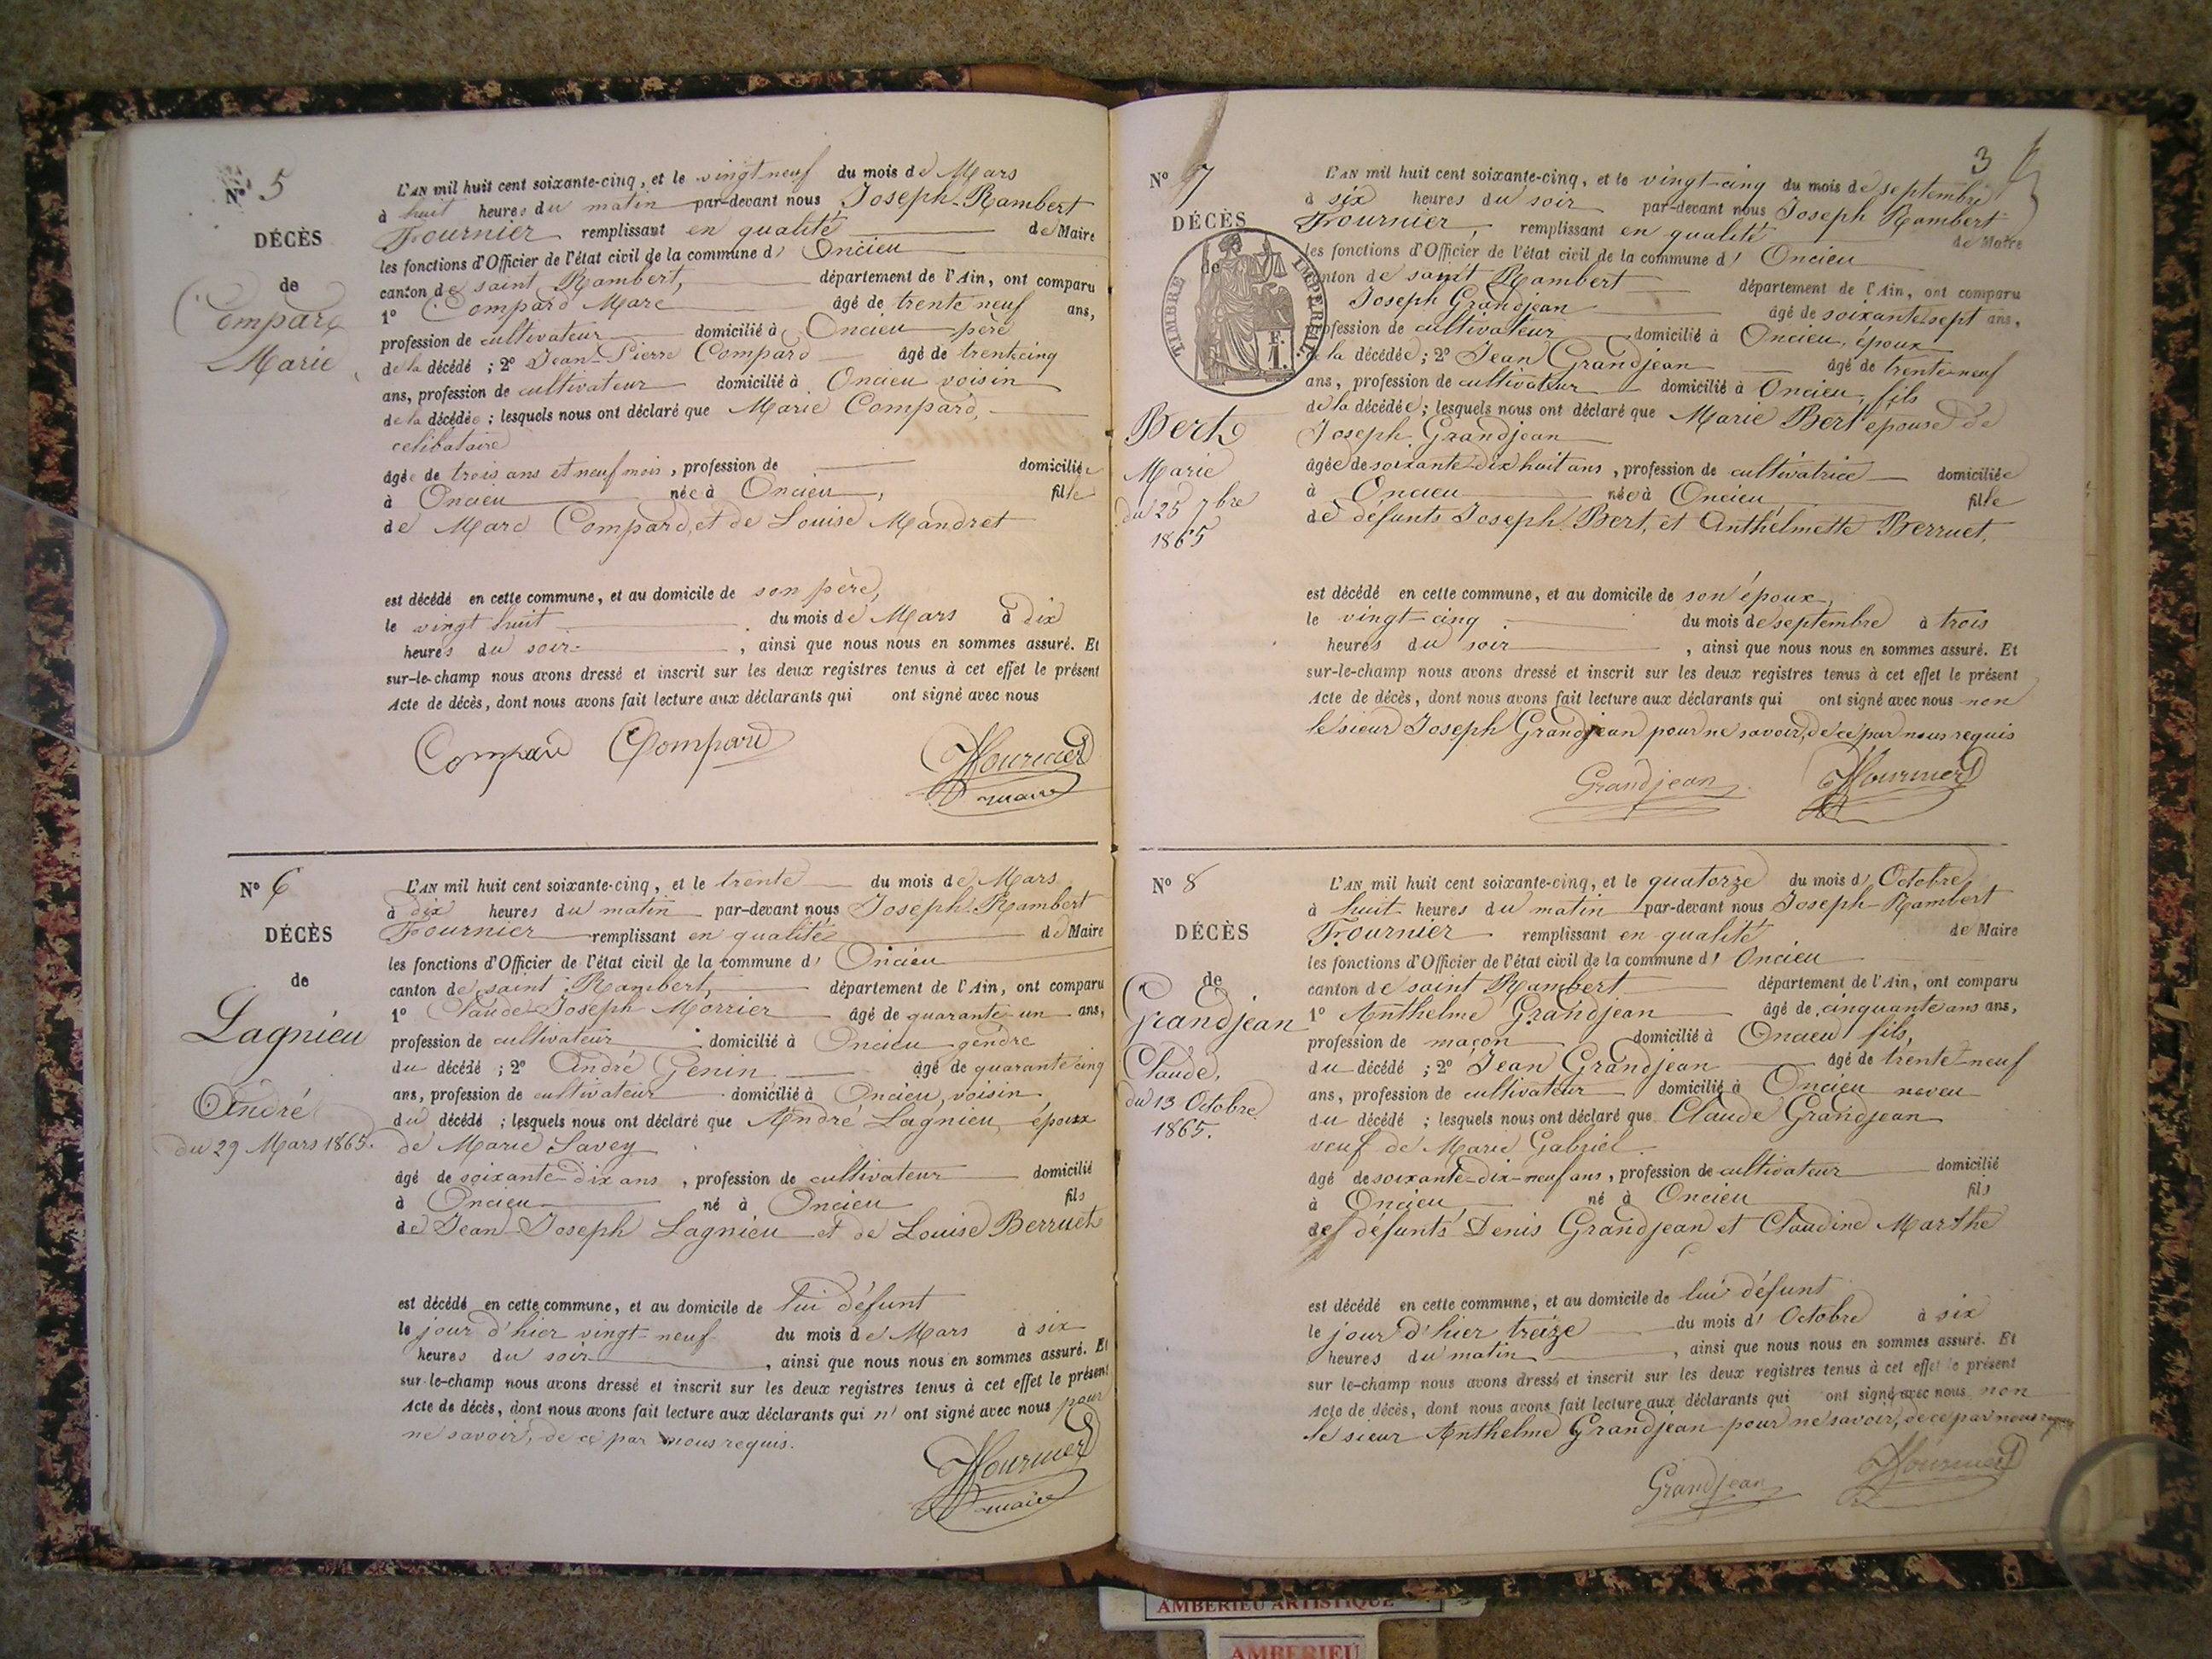 Nº 5
DÉCÈS
de
Compard
Marie
L'AN mil huit cent soixante-cinq, et le vingt neuf du mois de Mars
à huit heures du matin par-devant nous Joseph-Rambert
Fournier remplissant en qualité de Maire
les fonctions d'Officier de l'état civil de la commune d' Oncieu
canton de saint Rambert, département de l'Ain, ont comparu
1º Compard Marc âgé de trente neuf ans,
profession de cultivateur domicilié à Oncieu père
de la décédé ; 2º Jean-Pierre Compard âgé de trente cinq
ans, profession de cultivateur domicilié à Oncieu voisin
de la décédée ; lesquels nous ont déclaré que Marie Compard,
celibataire
âgée de trois ans et neuf mois, profession de domiciliée
à Oncieu née à Oncieu, fille
de Marc Compard, et de Louise Mandret
est décédé en cette commune, et au domicile de son père,
le vingt huit du mois de Mars à dix
heures du soir , ainsi que nous nous en sommes assuré. Et
sur-le-champ nous avons dressé et inscrit sur les deux registres tenus à cet effet le présent
Acte de décès, dont nous avons fait lecture aux déclarants qui ont signé avec nous
Compard Compard JRFournier
maire
Nº 6
DÉCÈS
de
Lagnieu
André
du 29 Mars 1865.
L'AN mil huit cent soixante-cinq, et le trente du mois de Mars
à dix heures du matin par-devant nous Joseph-Rambert
Fournier remplissant en qualité de Maire
les fonctions d'Officier de l'état civil de la commune d' Oncieu
canton de saint Rambert, département de l'Ain, ont comparu
1º Claude-Joseph Morrier âgé de quarante-un ans,
profession de cultivateur domicilié à Oncieu gendre
du décédé ; 2º André Genin âgé de quarante cinq
ans, profession de cultivateur domicilié à Oncieu, voisin
du décédé ; lesquels nous ont déclaré que André Lagnieu, époux
de Marie Savey
âgé de soixante-dix ans , profession de cultivateur domicilié
à Oncieu né à Oncieu fils
de Jean-Joseph Lagnieu et de Louise Berruet
est décédé en cette commune, et au domicile de lui défunt
le jour d'hier vingt neuf du mois de Mars à six
heures du soir , ainsi que nous nous en sommes assuré. Et
sur-le-champ nous avons dressé et inscrit sur les deux registres tenus à cet effet le présent
Acte de décès, dont nous avons fait lecture aux déclarants qui n' ont signé avec nous pour
ne savoir, de ce par nous requis.
JRFournier
maire
3
Nº 7
DÉCÈS
de
TIMBRE IMPÉRIAL
1 F.
Bert
Marie
du 25 7bre
1865
L'AN mil huit cent soixante-cinq, et le vingt-cinq du mois de septembre
à six heures du soir par-devant nous Joseph Rambert
Fournier, remplissant en qualité de Maire
les fonctions d'Officier de l'état civil de la commune d' Oncieu
canton de saint Rambert département de l'Ain, ont comparu
Joseph Grandjean âgé de soixante sept ans,
profession de cultivateur domicilié à Oncieu, époux
de la décédée ; 2º Jean Grandjean âgé de trente-neuf
ans, profession de cultivateur domicilié à Oncieu, fils
de la décédée ; lesquels nous ont déclaré que Marie Bert épouse de
Joseph Grandjean
âgée de soixante-dix huit ans , profession de cultivatrice domiciliée
à Oncieu née à Oncieu fille
de défunts Joseph Bert, et Anthelmette Berruet,
est décédé en cette commune, et au domicile de son époux,
le vingt-cinq du mois de septembre à trois
heures du soir , ainsi que nous nous en sommes assuré. Et
sur-le-champ nous avons dressé et inscrit sur les deux registres tenus à cet effet le présent
Acte de décès, dont nous avons fait lecture aux déclarants qui ont signé avec nous non
le sieur Joseph Grandjean pour ne savoir, de ce par nous requis
Grandjean JRFournier
Nº 8
DÉCÈS
de
Grandjean
Claude,
du 13 Octobre
1865.
L'AN mil huit cent soixante-cinq, et le quatorze du mois d' Octobre
à huit heures du matin par-devant nous Joseph-Rambert
Fournier remplissant en qualité de Maire
les fonctions d'Officier de l'état civil de la commune d' Oncieu
canton de saint Rambert département de l'Ain, ont comparu
1º Anthelme Grandjean âgé de cinquante ans ans,
profession de maçon domicilié à Oncieu fils,
du décédé ; 2º Jean Grandjean âgé de trente-neuf
ans, profession de cultivateur domicilié à Oncieu neveu
du décédé ; lesquels nous ont déclaré que Claude Grandjean
veuf de Marie Gabriel
âgé de soixante-dix-neuf ans, profession de cultivateur domicilié
à Oncieu né à Oncieu fils
des défunts Denis Grandjean et Claudine Marthe
est décédé en cette commune, et au domicile de lui défunt
le jour d'hier treize du mois d' Octobre à six
heures du matin , ainsi que nous nous en sommes assuré. Et
sur le-champ nous avons dressé et inscrit sur les deux registres tenus à cet effet le présent
Acte de décès, dont nous avons fait lecture aux déclarants qui ont signé avec nous non
le sieur Anthelme Grandjean pour ne savoir, de ce par nous requis
Grandjean JRFournier
AMBERIEU ARTISTIQUE
AMBERIEU